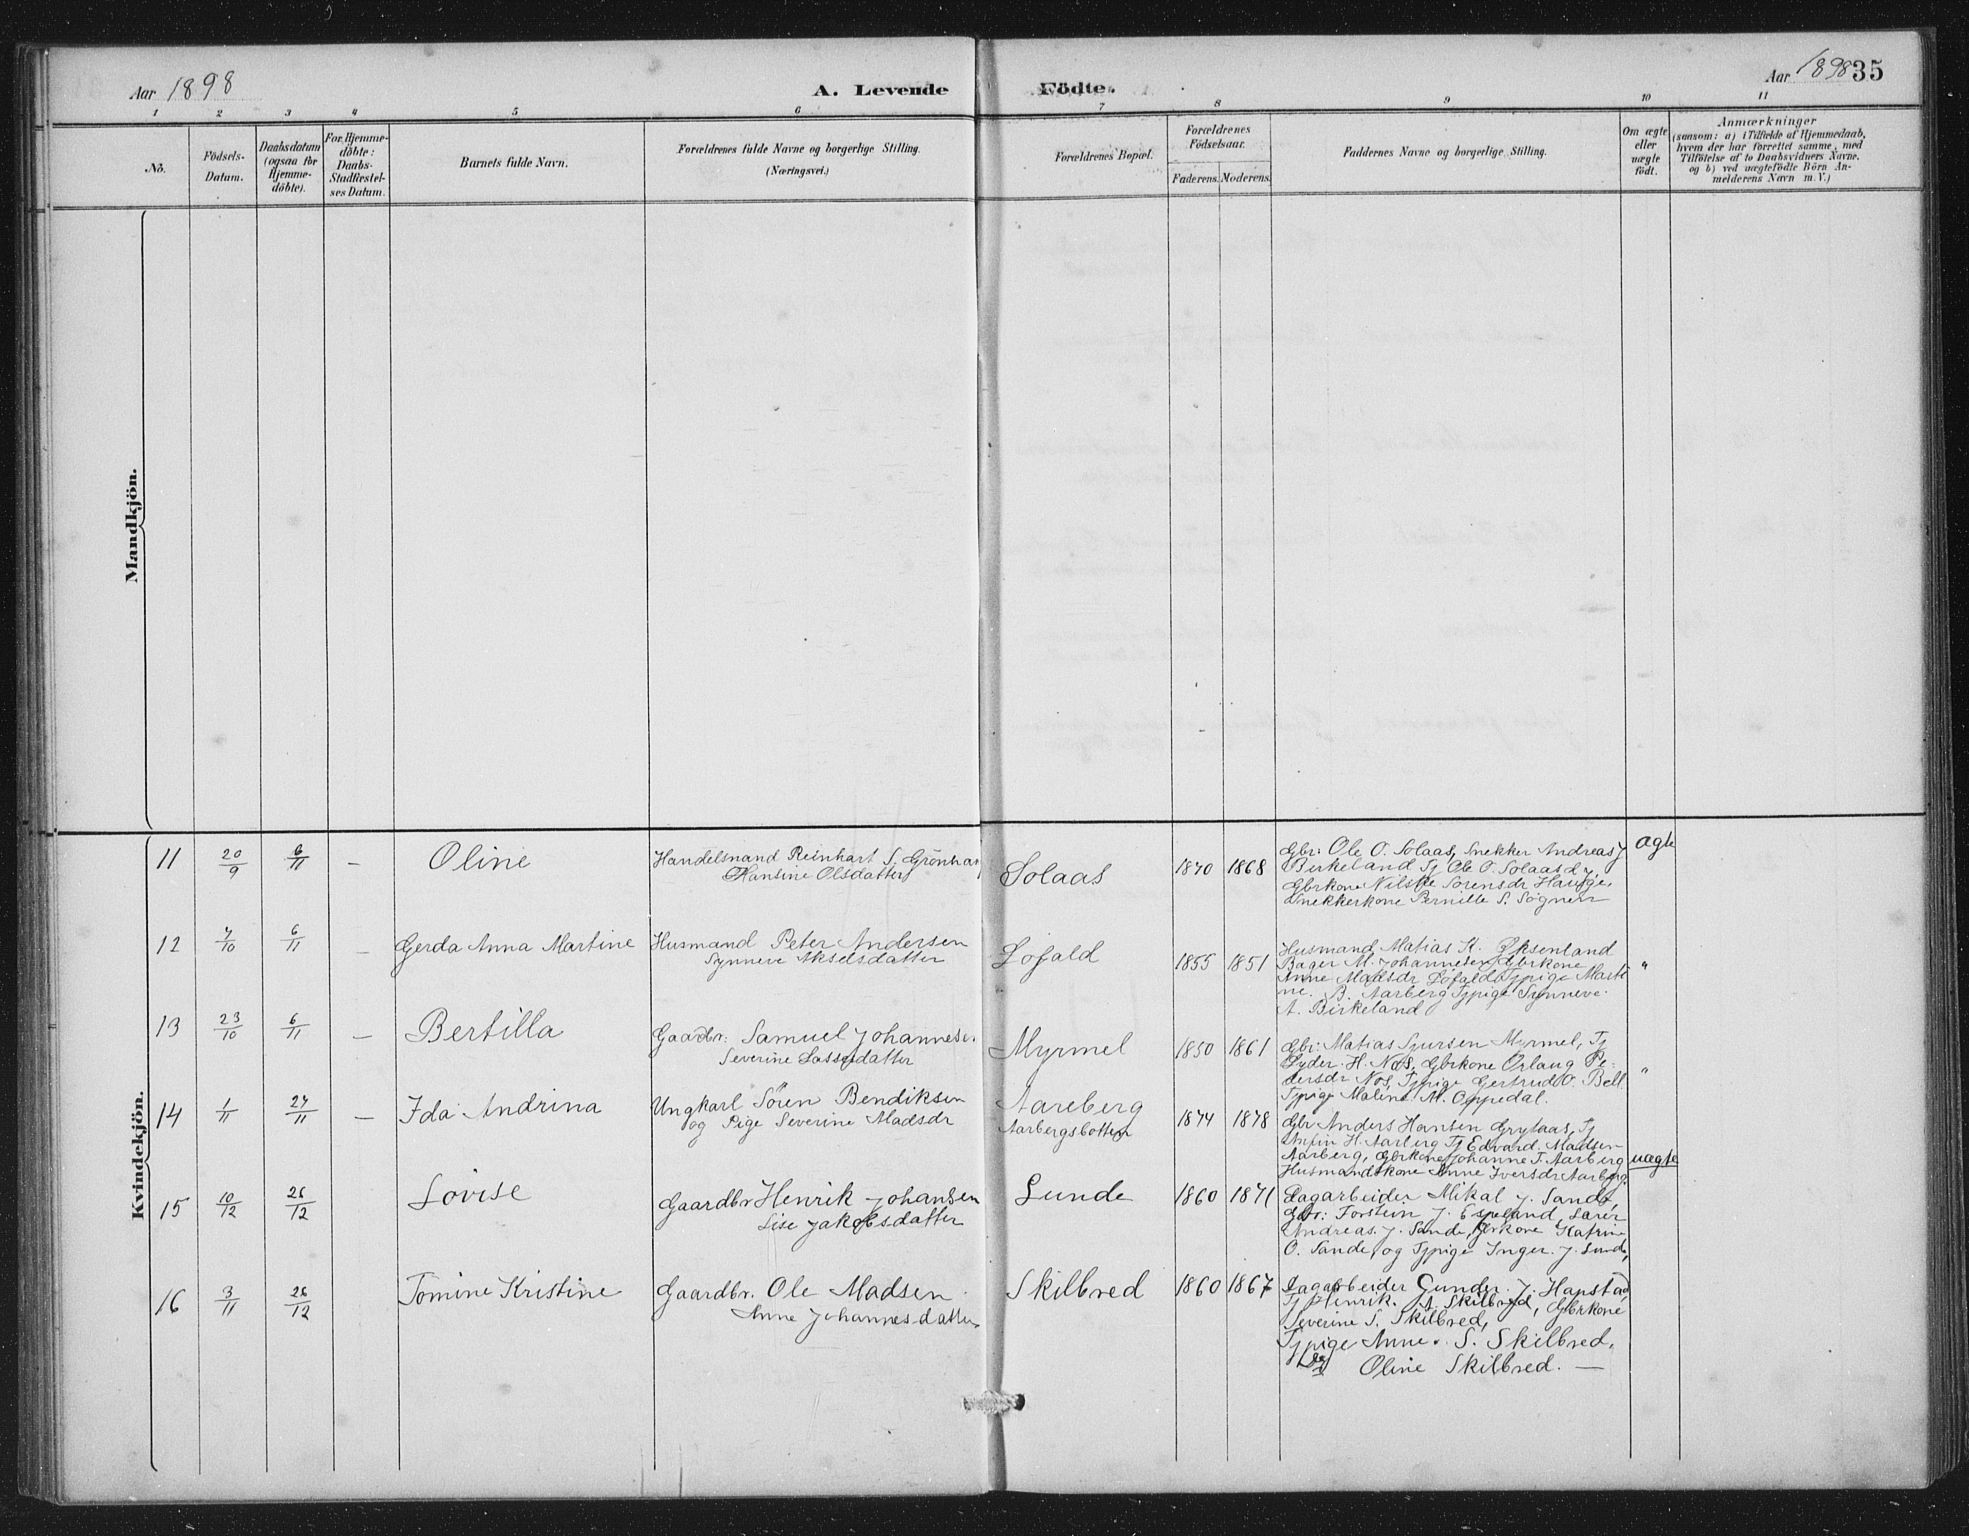 Aar 1898
A. Levende Födte.
Aar 1898 35
1 2 3 4 5 6 7 8 9 10 11
No.
Födsels-
Datum.
Daabsdatum
(ogsaa for
Hjemme-
döbte).
For Hjemme-
döbte:
Daabs-
Stadfæstel-
ses Datum.
Barnets fulde Navn.
Forældrenes fulde Navne og borgerlige Stilling.
(Næringsvei.)
Forældrenes Bopæl.
Forældrenes
Födselsaar.
Faderens. Moderens.
Faddernes Navne og borgerlige Stilling.
Om ægte
eller
uægte
födt.
Anmærkninger
(saasom: a) i Tilfælde af Hjemmedaab,
hvem der har forrettet samme, med
Tilföielse af to Daabsvidners Navne,
og b) ved uægtefödte Börn An-
melderens Navn m. V.)
Mandkjön.
Kvindekjön.
11 20/9 6/11 — Oline
Handelsmand Reinhart S. Grönhaug
Hansine Olsdatter
Solaas 1870 1868
Gbr: Ole O. Solaas, Snekker Andreas J
Birkeland Tj Ole O. Solaas
Gbrkone Nilsine Sörensdr Hauge,
Snekkerkone Pernille S. Sögnen
ægte
12 7/10 6/11 — Gerda Anna Martine
Husmand Peter Andersen
Synneve Akselsdatter
Lofald 1855 1851
Husmand Matias K. Øksenland
Bager M. Johannesen Gbrkone
Anne Madsdr Lofald Tjpige Marti
ne. B. Aarberg Tjpige Synneve.
A. Birkeland
"
13 23/10 6/11 — Bertilla
Gaardbr: Samuel Johannesen
Severine Lassesdatter
Myrmel 1850 1861
Gbr: Matias Sjursen Myrmel, Tj
Peder. H. Nos, Gbrkone Orlaug Pe-
dersdr Nos, Tjpige Gertrud O. Bell
Tjpige Maline M. Oppedal.
"
14 1/11 27/11 — Ida Andrina
Ungkarl Sören Bendiksen
og Pige Severine Madsdr
Aareberg
Aarbergsbotten
1874 1878
Gbr Anders Hansen Grytaas, Tj
H. Aarberg Tj Edvard Madsen
Aarberg, Gbrkone Johanne T. Aarberg
Husmandskone Anne Iversdr Aarberg
uægte
15 10/12 26/12 Lovise
Gaardbr Henrik Johansen
Lise Jakobsdatter
Lunde 1860 1871
Dagarbeider Mikal J. Sande,
Gbr: Torstein J. Espeland, Lærer
Andreas. J. Sande, Gbrkone Katrine
O. Sande, og Tjpige Inger. J. Lunde,
16 3/11 26/12 Tomine Kristine
Gaardbr. Ole Madsen
Anne Johannesdatter
Skilbred 1860 1867
Dagarbeider Gunder. J. Hapstad
Tj Henrik. A. Skilbred, Gbrkone
Severine S. Skilbred,
Tjpige Anne. S. Skilbred,
Oline Skilbred. —